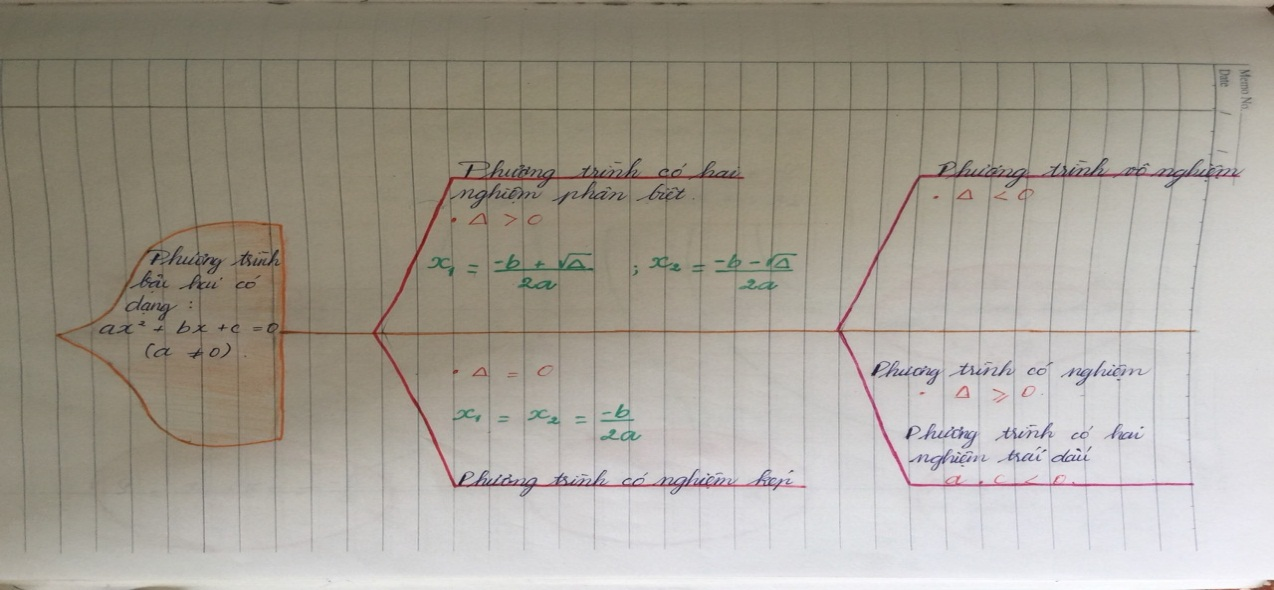 Memo No.
Date / /
Phương trình
bậc hai có
dạng :
ax² + bx + c = 0
(a ≠ 0).
Phương trình có hai
nghiệm phân biệt.
• Δ > 0
x₁ = \frac{-b + √Δ}{2a} ; x₂ = \frac{-b - √Δ}{2a}
• Δ = 0
x₁ = x₂ = \frac{-b}{2a}
Phương trình có nghiệm kép
Phương trình vô nghiệm
• Δ < 0
Phương trình có nghiệm
• Δ ⩾ 0.
Phương trình có hai
nghiệm trái dấu
a . c < 0.